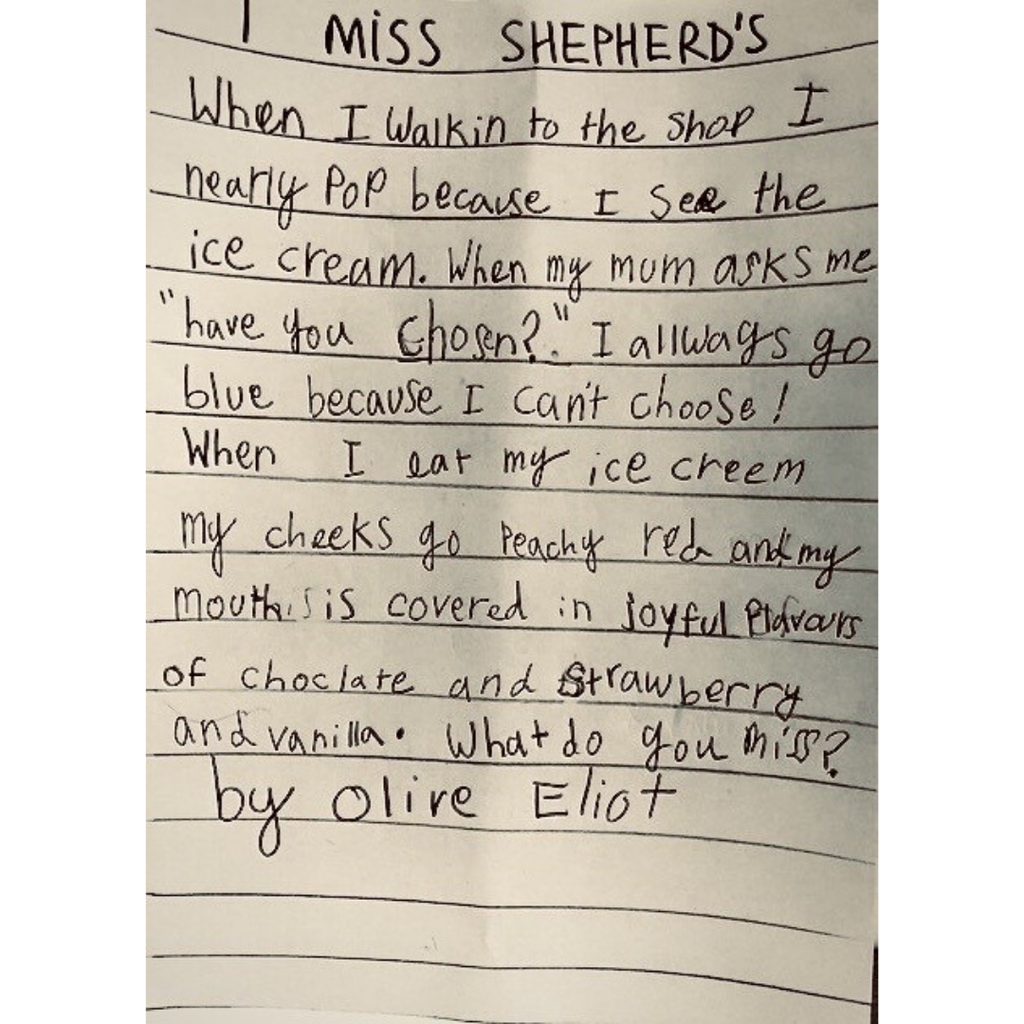 I MiSS SHEPHERD'S
When I Walkin to the shop I
nearly Pop because I see the
ice cream. When my mum asks me
"have you chosen?". I allways go
blue because I can't choose!
When I eat my ice creem
my cheeks go Peachy red and my
mouth is is covered in joyful flavours
of choclate and strawberry
and vanilla. What do you miss?
by Olive Eliot